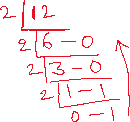 2 | 12
2 | 6 - 0
2 | 3 - 0
2 | 1 - 1
0 - 1